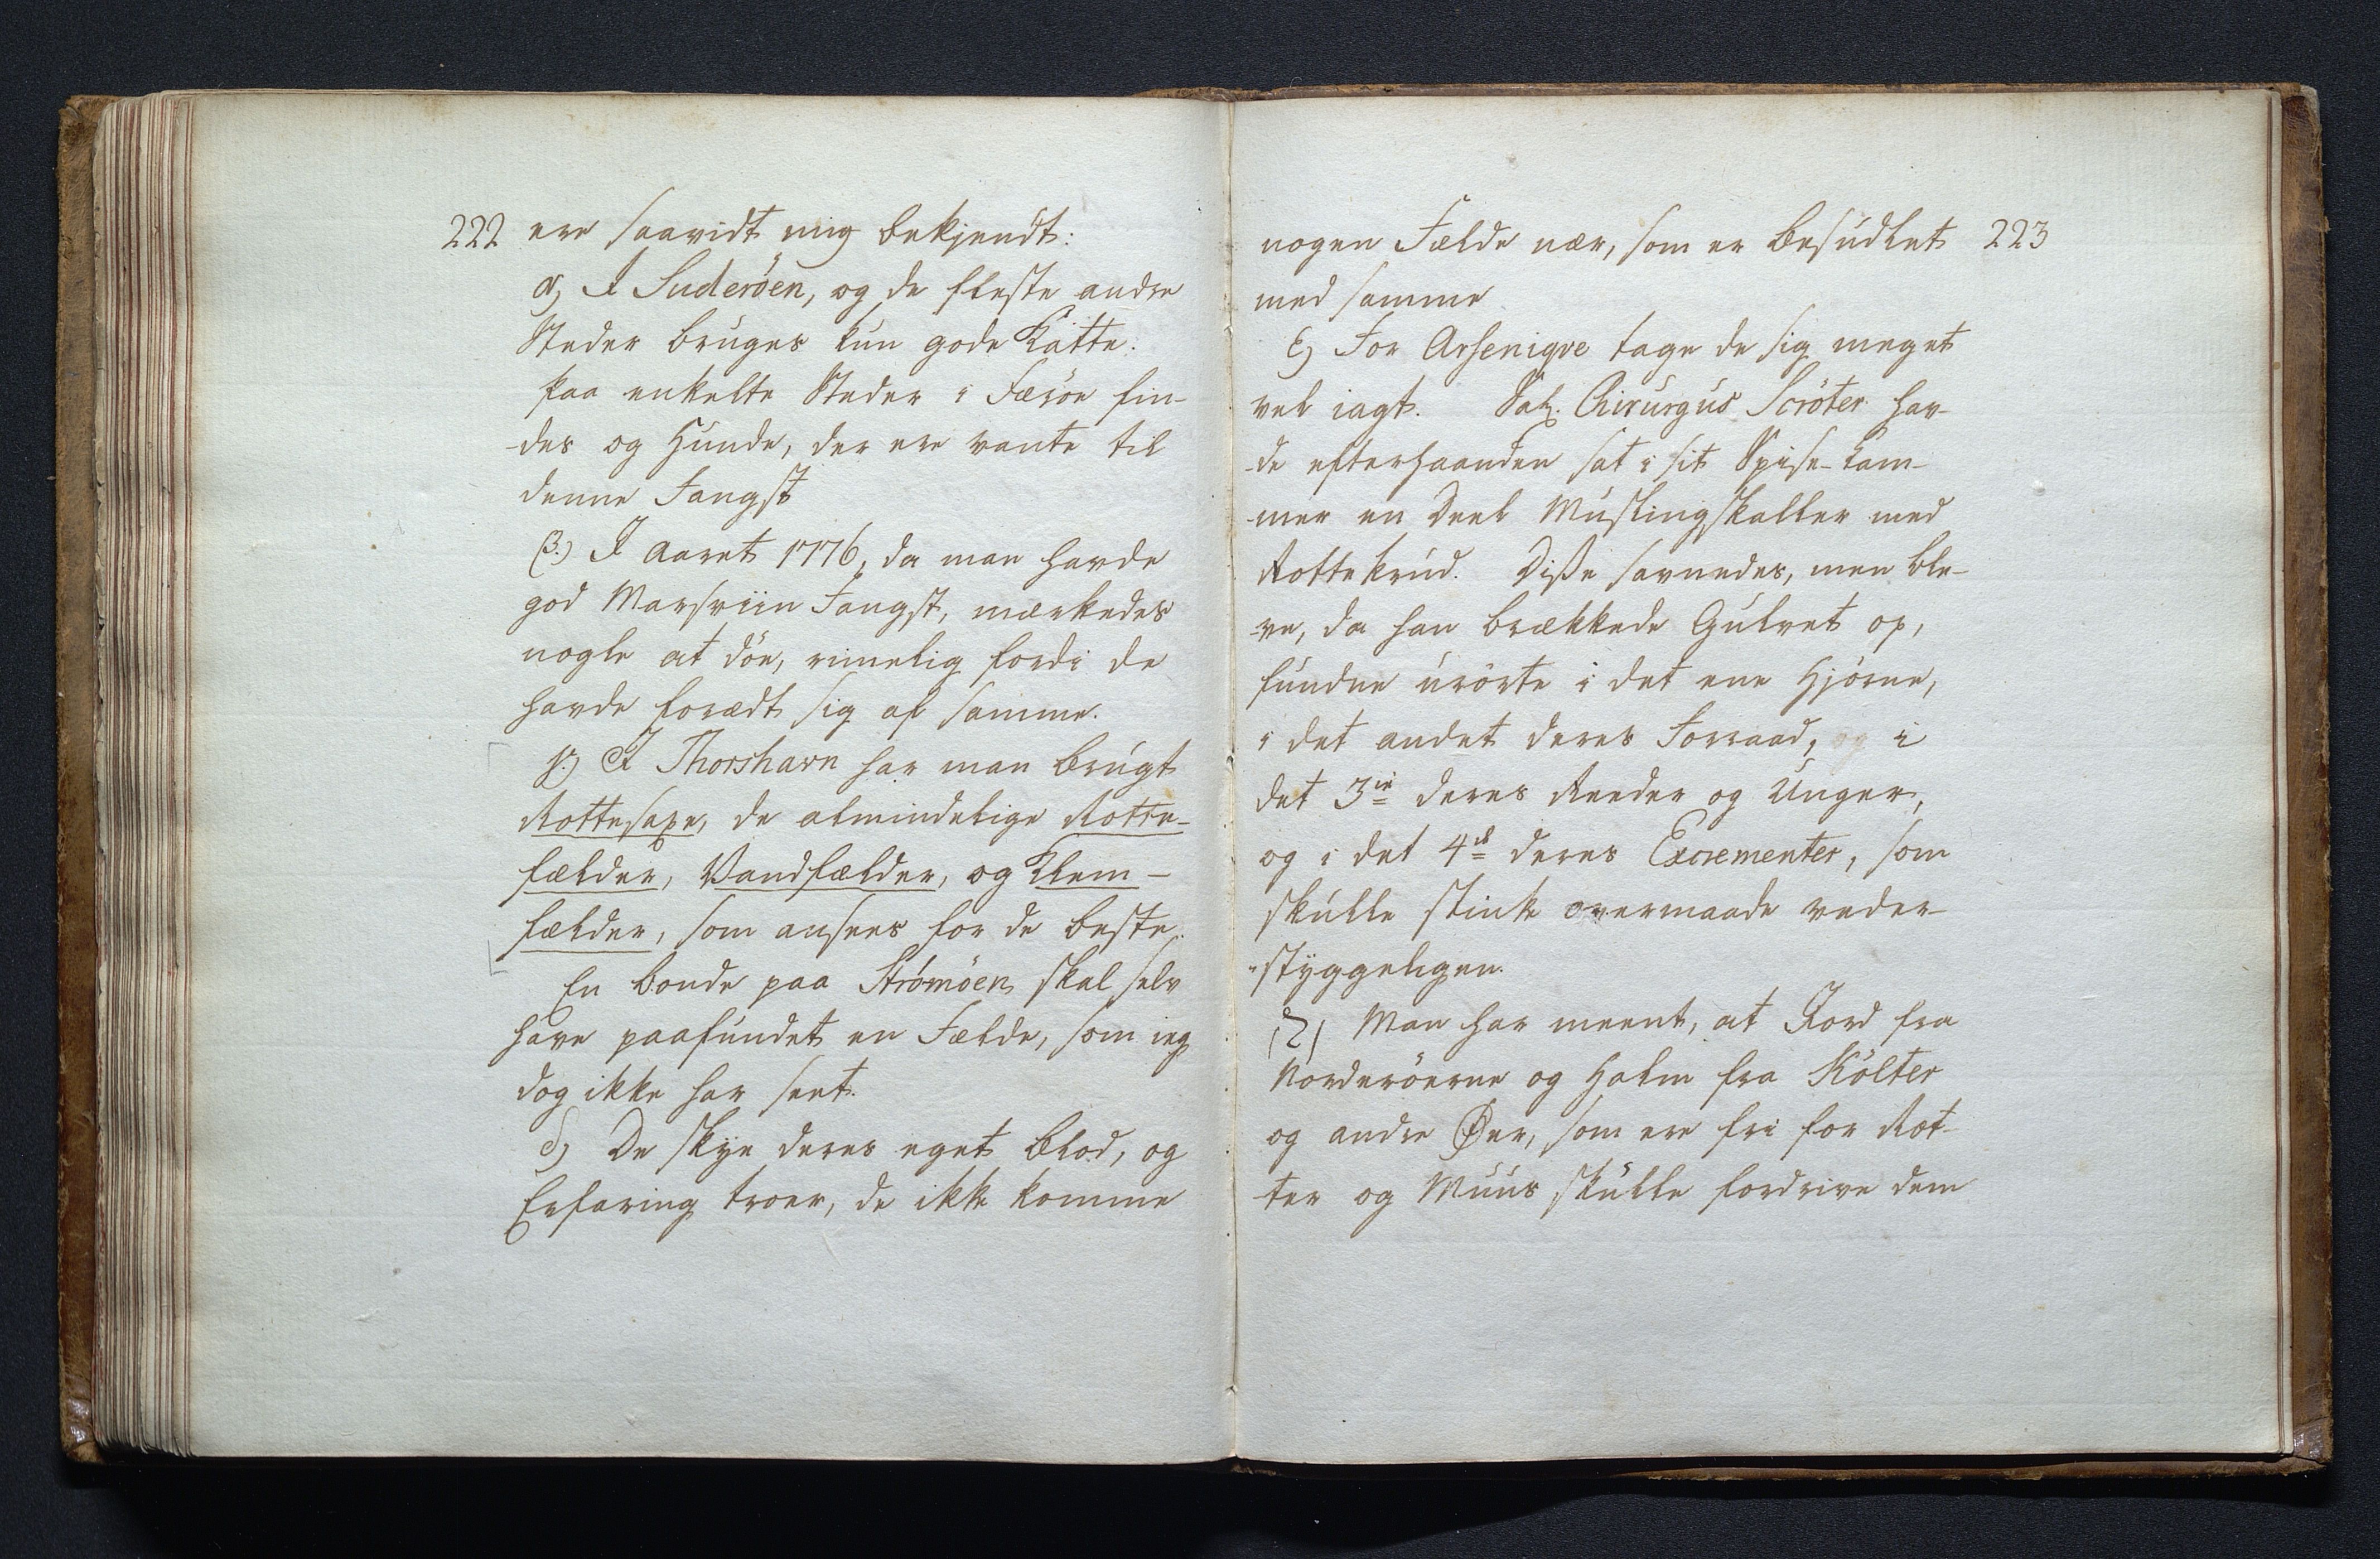 222 ere saavidt mig bekjendt:
α) I Suderöen, og de fleste andre
Steder bruges kun gode Katte.
paa enkelte Steder i Færöe fin-
-des og Hunde, der ere vante til
denne Fangst
β.) I Aaret 1776, da man havde
god Marsviin Fangst, mærkedes
nogle at döe, rimelig fordi de
havde forædt sig af samme.
γ.) I Thorshavn har man brugt
Rottesaxe, de almindelige Rotte-
fælder, Vandfælder, og Klem-
fælder, som ansees for de beste.
En bonde paa Strömöen skal selv
have paafundet en Fælde, som ieg
dog ikke har seet.
δ) De skye deres eget Blod, og
Erfaring troer, de ikke komme
nogen Fælde nær, som er besudlet 223
med samme
ε) For Arseniqve tage de sig meget
vel iagt. Sal. Chirurgus Scröter hav-
-de efterhaanden sat i sit Spise-Kam-
-mer en Deel Muslingskaller med
Rottekrud. Disse savnedes, men ble-
-ve, da han brækkede Gulvet op,
fundne urörte i det ene Hjörne,
i det andet deres Forraad, og i
det 3ie deres Reeder og Unger,
og i det 4de deres Excrementer, som
skulle stinke overmaade veder-
-styggeligen.
ζ) Man har meent, at Jord fra
Norderöerne og Halm fra Költer
og andre Öer, som ere fri for Rot-
-ter og Muus skulle fordrive dem